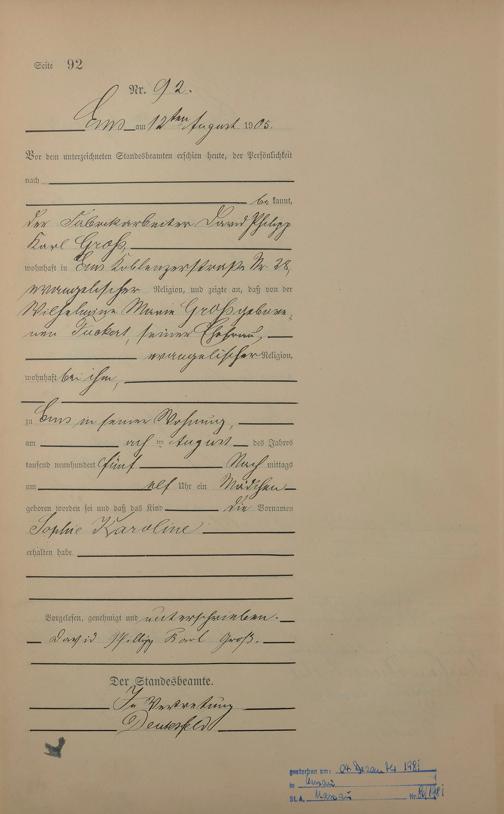 Seite 92
Nr. 92.
Ems am 12ten August 1905.
Vor dem unterzeichneten Standesbeamten erschien heute, der Persönlichkeit
nach
be kannt,
der Fabrikarbeiter David Philipp
Karl Groß,
wohnhaft in Ems Koblenzerstraße Nr. 28,
evangelischer Religion, und zeigte an, daß von der
Wilhelmine Marie Groß gebore-
nen Tückert, seiner Ehefrau,
evangelischer Religion,
wohnhaft bei ihm,
zu Ems in seiner Wohnung,
am ach ten August des Jahres
tausend neunhundert fünf Nach mittags
um elf Uhr ein Mädchen
geboren worden sei und daß das Kind die Vornamen
Sophie Karoline
erhalten habe.
Vorgelesen, genehmigt und unterschrieben.
David Philipp Karl Groß.
Der Standesbeamte.
In Vertretung
gestorben am: 04. Dezember 1981
in Nassau
St.A. Nassau Nr.